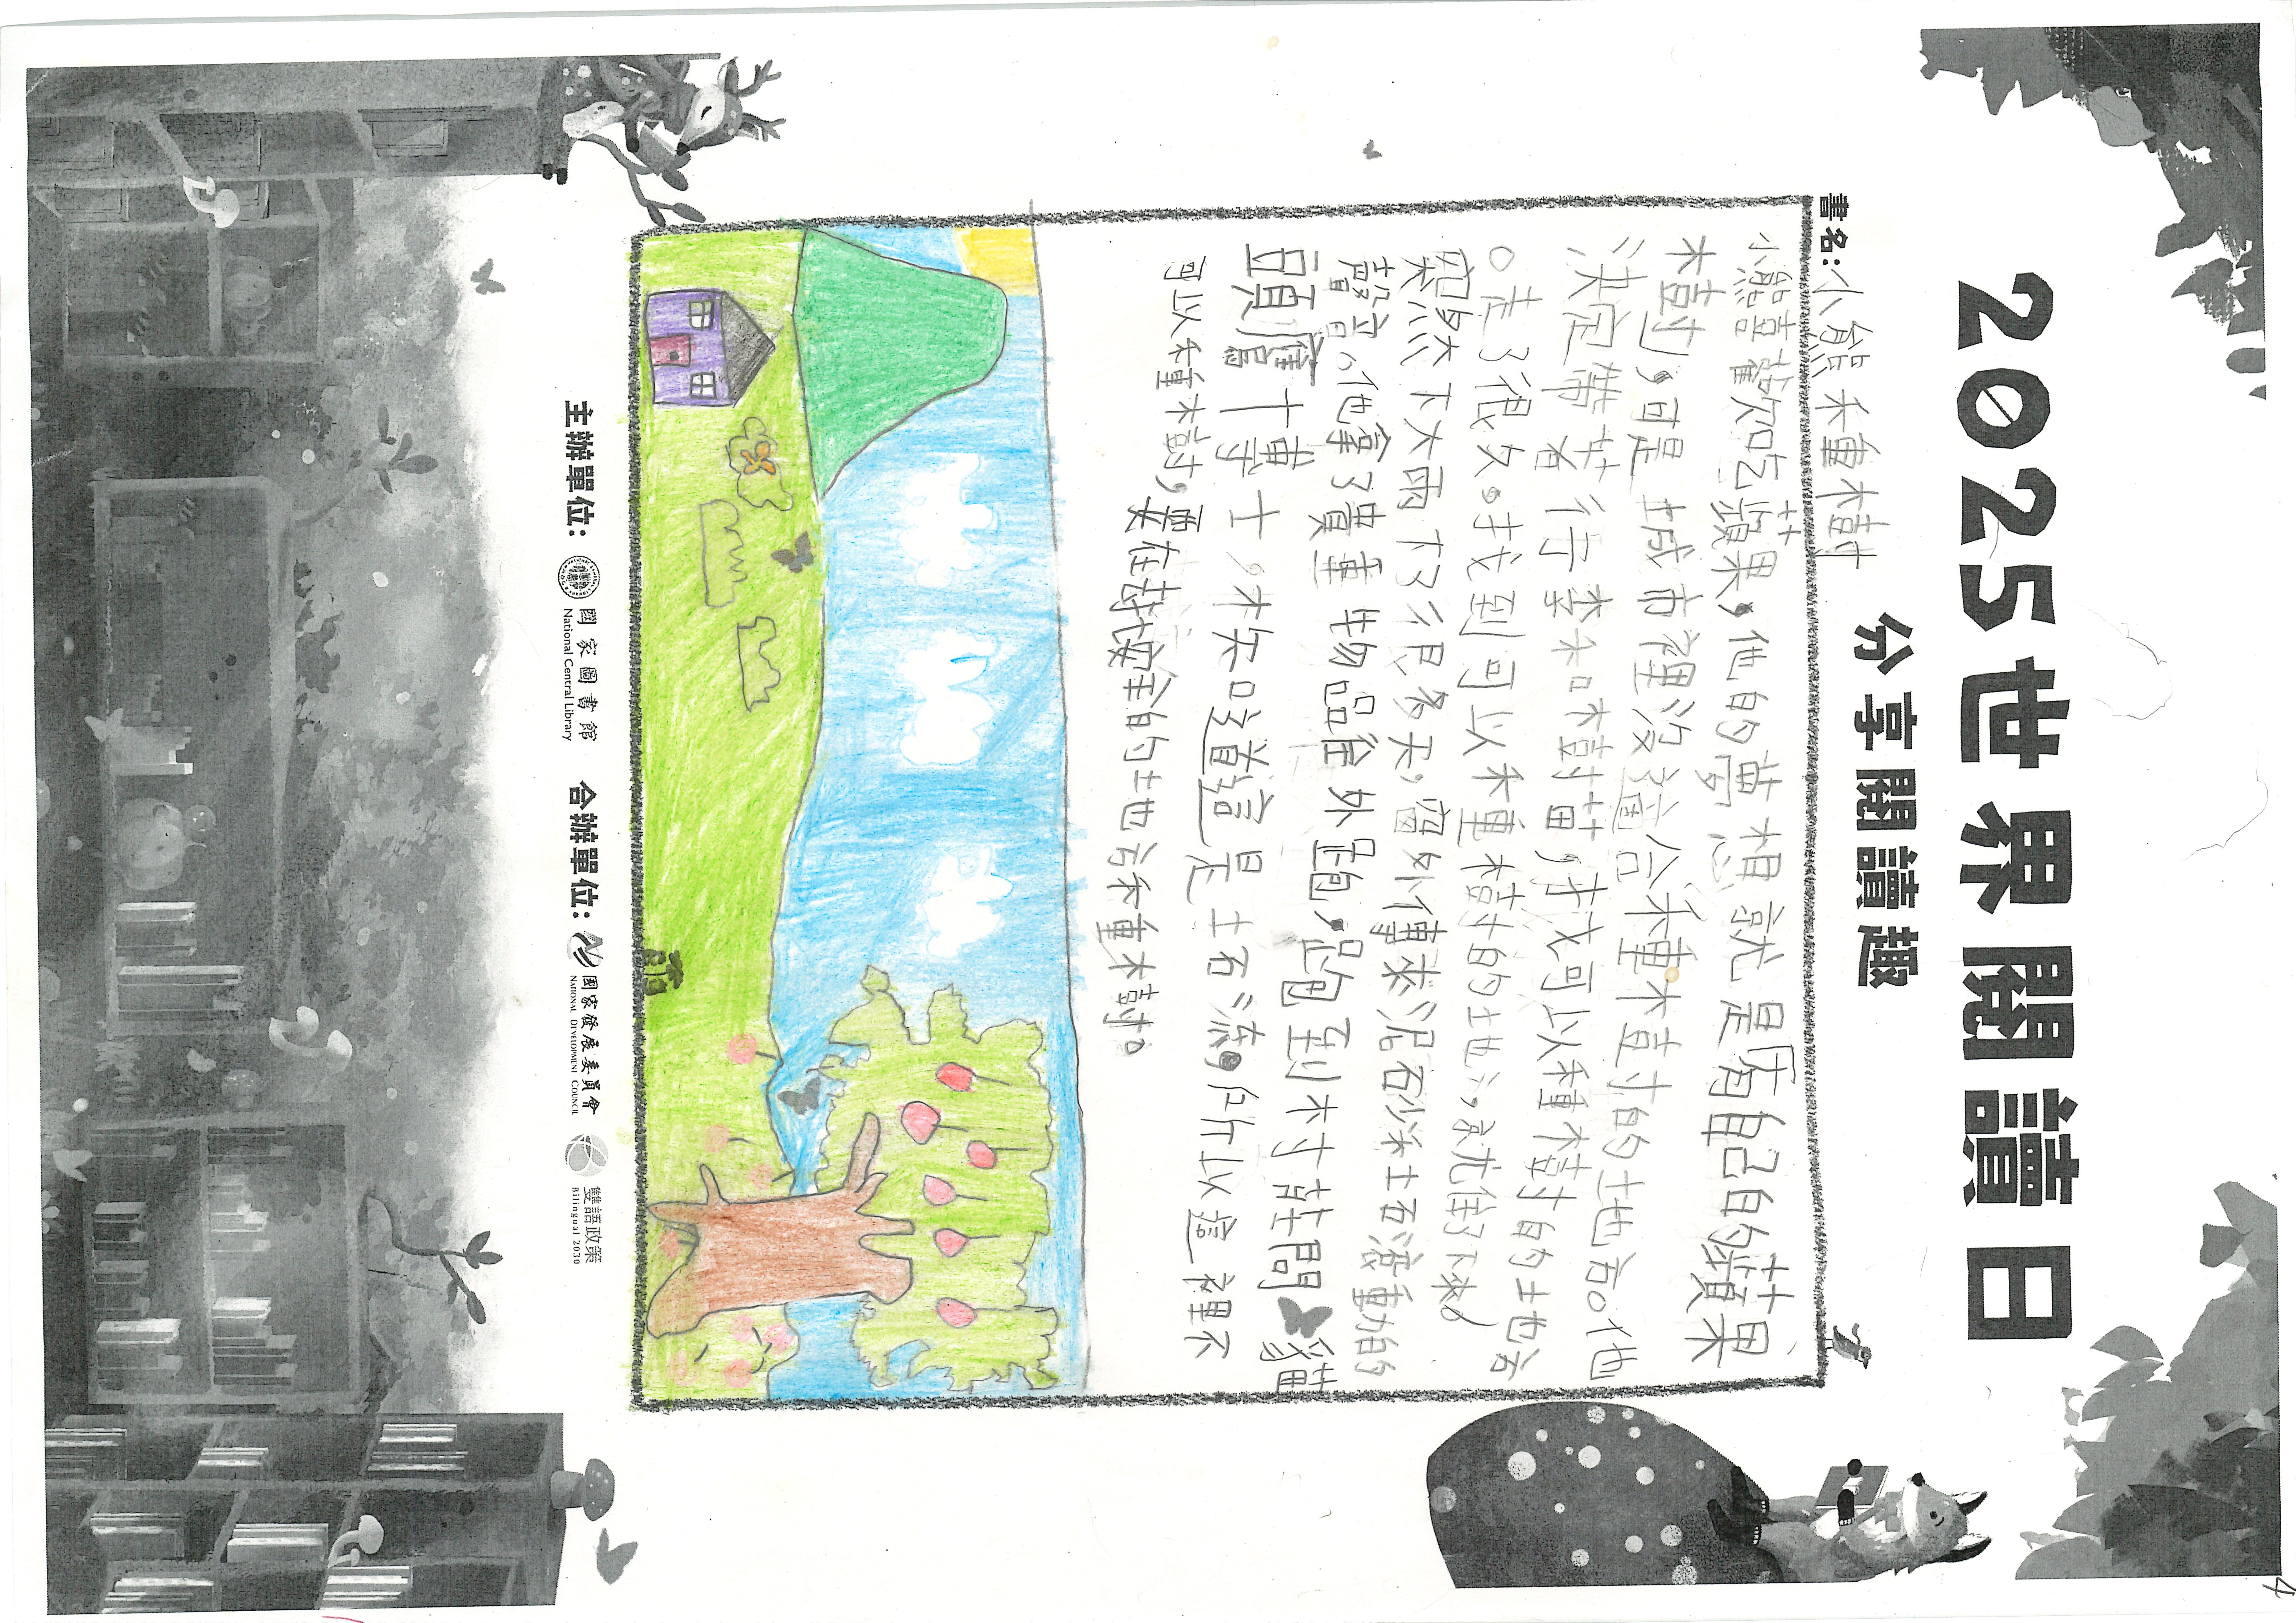 2025世界閱讀日
分享閱讀趣
書名:小熊種樹
小熊喜歡吃蘋果,他的夢想就是有自己的蘋果
樹,可是城市裡沒適合種樹的地方。他
決定帶著行李和樹苗,找可以種樹的地方
。走了很久。找到可以種樹的地方,就住了下來。
突然下大雨下了很多天,窗外傳來泥砂禾土石滾動的
聲音。他拿了貴重物品往外跑,跑到村莊問貓
頭鷹博士,才知道這是土石流,所以這裡不
可以種樹,要在找安全的地方種樹。
主辦單位: 國家圖書館 National Central Library 合辦單位: 國家發展委員會 NATIONAL DEVELOPMENT COUNCIL 雙語政策 Bilingual 2030
4